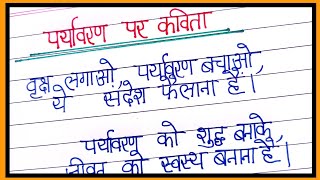 पर्यावरण पर कविता
वृक्ष लगाओ, पर्यावरण बचाओ,
ये संदेश फैलाना है।
पर्यावरण को शुद्ध बनाके,
जीवन को स्वस्थ बनाना है।